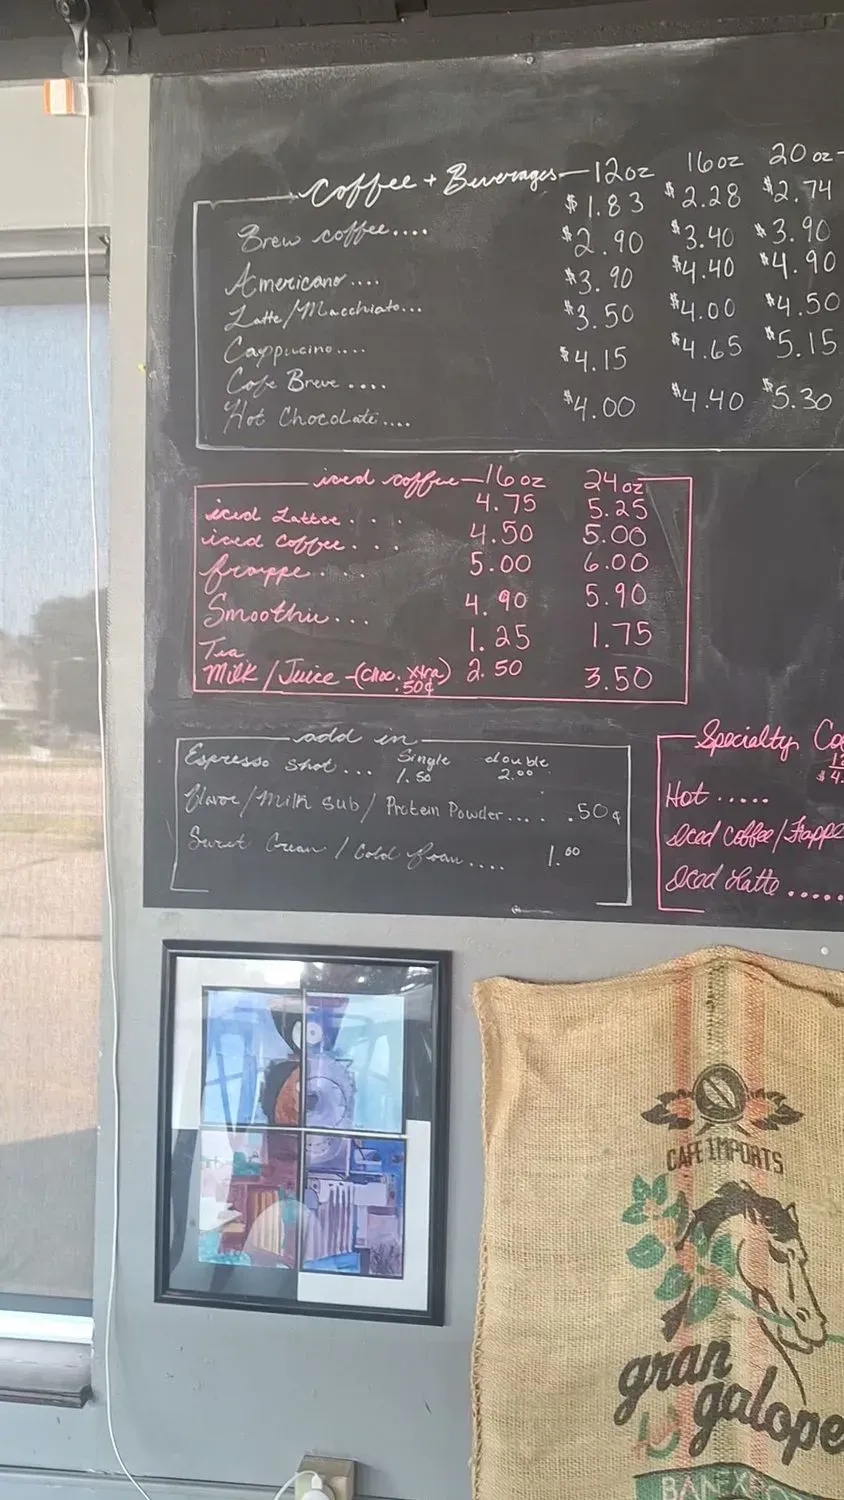 Coffee + Beverages 12oz 16oz 20oz
Brew coffee.... $1.83 $2.28 $2.74
Americano.... $2.90 $3.40 $3.90
Latte/Macchiato... $3.90 $4.40 $4.90
Cappucino.... $3.50 $4.00 $4.50
Cafe Breve .... $4.15 $4.65 $5.15
Hot Chocolate.... $4.00 $4.40 $5.30
iced coffee 16oz 24oz
iced Latte . . . 4.75 5.25
iced coffee. . . 4.50 5.00
frappe. . . . 5.00 6.00
Smoothie... 4.90 5.90
Tea 1.25 1.75
Milk/Juice-(choc. Xtra) 2.50 3.50
.50¢
add in
Espresso Shot... Single double
1.50 2.00
flavor/Milk sub/Protein Powder.... .50¢
Sweet Cream/Cold foam.... 1.00
Specialty Co
Hot .....
Iced Coffee/Frappe
Iced Latte .....
CAFE IMPORTS
gran
galope
BANEXPO